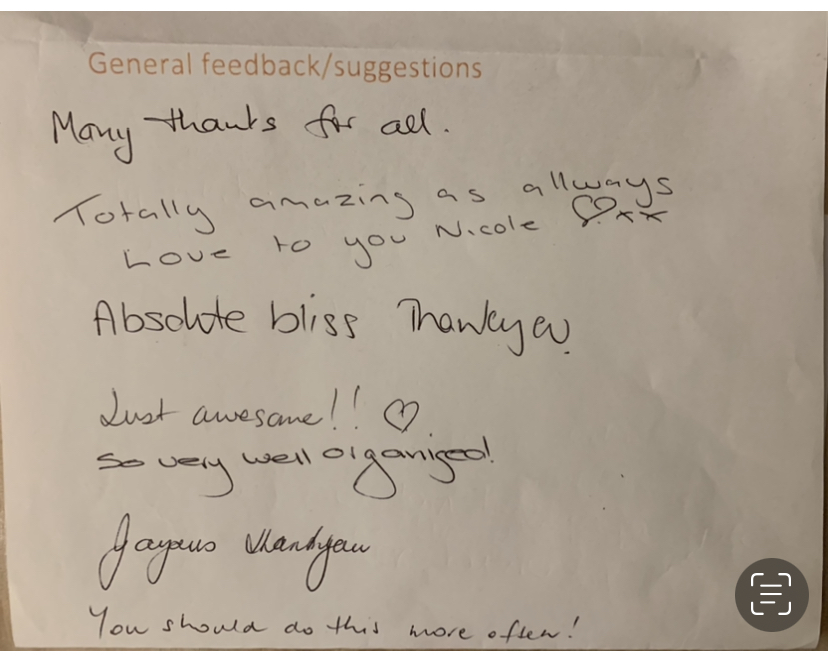 General feedback/suggestions
Many thanks for all.
Totally amazing as allways
Love to you Nicole ♡xx
Absolute bliss Thankyou.
Just awesome!! ♡
So very well organised!
Joyous thankyou
You should do this more often!